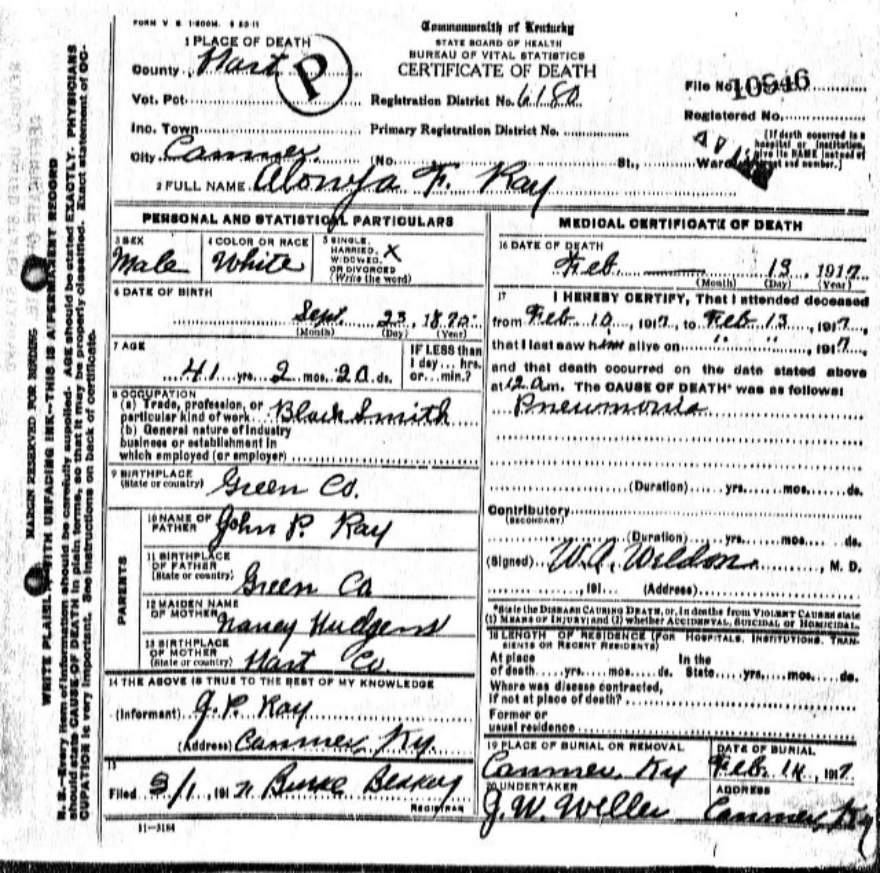 FORM V. S. 1-500M. 6 30-11
Commonwealth of Kentucky
STATE BOARD OF HEALTH
BUREAU OF VITAL STATISTICS
CERTIFICATE OF DEATH
1 PLACE OF DEATH
County Hart
P
Vot. Pct.
Registration District No. 6180
File No. 10946
Registered No.
Inc. Town
Primary Registration District No.
[If death occurred in a hospital or institution, give its NAME instead of street and number.]
City Canmer (No. St., Ward)
2 FULL NAME Alonza F. Ray
PERSONAL AND STATISTICAL PARTICULARS
3 SEX
Male
4 COLOR OR RACE
White
5 SINGLE,
MARRIED, X
WIDOWED,
OR DIVORCED
(Write the word)
6 DATE OF BIRTH
Sept. 23, 1875
(Month) (Day) (Year)
7 AGE
41 yrs. 2 mos. 20 ds.
IF LESS than
1 day... hrs.
or... min.?
8 OCCUPATION
(a) Trade, profession, or
particular kind of work Black Smith
(b) General nature of industry
business or establishment in
which employed (or employer)
9 BIRTHPLACE
(State or country) Green Co.
PARENTS
10 NAME OF
FATHER John P. Ray
11 BIRTHPLACE
OF FATHER
(State or country) Green Co
12 MAIDEN NAME
OF MOTHER Nancy Hudgens
13 BIRTHPLACE
OF MOTHER
(State or country) Hart Co.
14 THE ABOVE IS TRUE TO THE BEST OF MY KNOWLEDGE
(Informant) J. P. Ray
(Address) Canmer, Ky.
15
Filed 3/1, 1917 Burke
REGISTRAR
11-3184
MEDICAL CERTIFICATE OF DEATH
16 DATE OF DEATH
Feb. 13, 1917
(Month) (Day) (Year)
17 I HEREBY CERTIFY, That I attended deceased
from Feb 10, 1917, to Feb 13, 1917,
that I last saw him alive on " ", 1917,
and that death occurred on the date stated above
at 12 a.m. The CAUSE OF DEATH* was as follows:
Pneumonia
(Duration) yrs. mos. ds.
Contributory
(SECONDARY)
(Duration) yrs. mos. ds.
(Signed) W. A. Weldon, M. D.
, 191 (Address)
*State the DISEASE CAUSING DEATH, or, in deaths from VIOLENT CAUSES state
(1) MEANS OF INJURY; and (2) whether ACCIDENTAL, SUICIDAL or HOMICIDAL.
18 LENGTH OF RESIDENCE (FOR HOSPITALS, INSTITUTIONS, TRAN-
SIENTS OR RECENT RESIDENTS)
At place In the
of death yrs. mos. ds. State yrs. mos. ds.
Where was disease contracted,
if not at place of death?
Former or
usual residence
19 PLACE OF BURIAL OR REMOVAL
Canmer, Ky
DATE OF BURIAL
Feb. 14, 1917
20 UNDERTAKER
J. W. Weller
ADDRESS
Canmer, Ky
MARGIN RESERVED FOR BINDING
WRITE PLAINLY, WITH UNFADING INK—THIS IS A PERMANENT RECORD
N. B.—Every item of information should be carefully supplied. AGE should be stated EXACTLY. PHYSICIANS
should state CAUSE OF DEATH in plain terms, so that it may be properly classified. Exact statement of OC-
CUPATION is very important. See instructions on back of certificate.